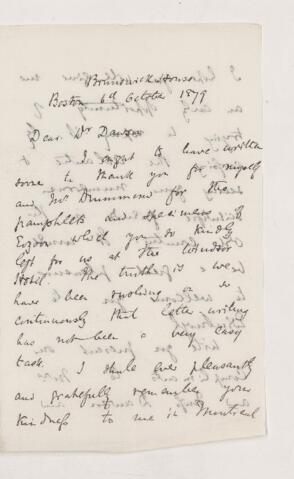 Brunswick House
Boston 6d October 1879
Dear Dr Dawson
I ought to have written
sooner to thank you for myself
and Mr Drummond for the
pamphlets and specimens of
Eozoon which you so kindly
left for us at the Windsor
Hotel. The truth is we
have been travelling so
continuously that letter writing
has not been a very easy
task. I shall ever pleasantly
and gratefully remember your
kindness to me in Montreal